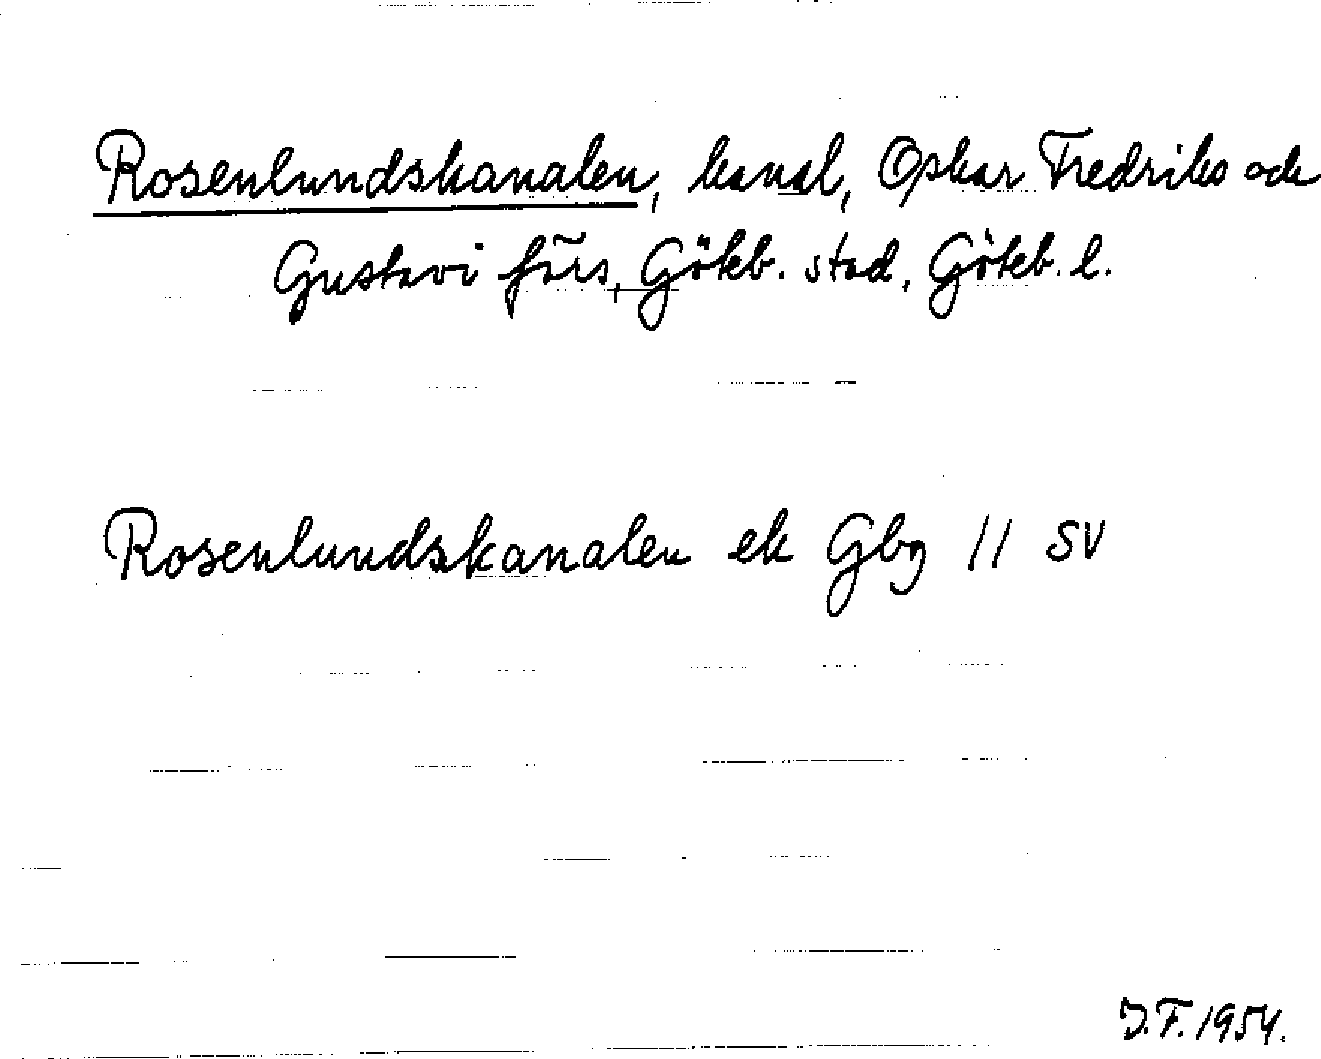 Rosenlundskanalen, kanal, Oskar Fredriks och
Gustavi förs, Göteb. stad, Göteb. l.
Rosenlundskanalen ek Gbg 11 SV
J.F. 1954.